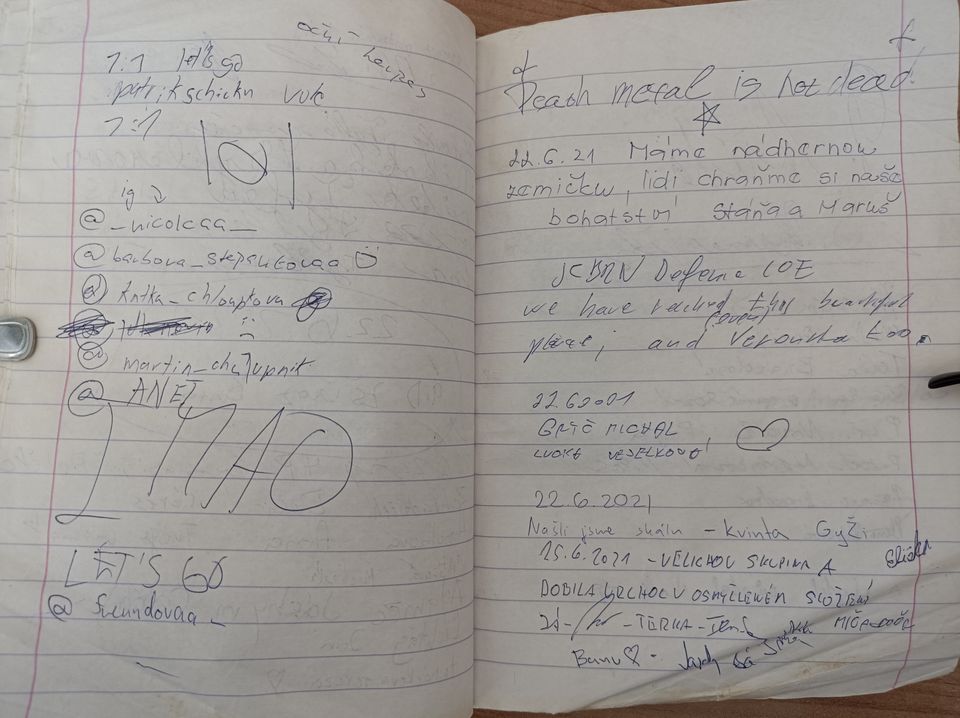 1:1 let's go
patrikschickn vole
1:1
oční herpes
ig
@_nicolcaa_
@barbora_stepankovaa
@katka_chloupkova
@martin_chalupnik
@_ANET
LMAO
LET'S GO
@freundovaa_
Death metal is not dead.
22.6.21 Máme nádhernou
zemičku, lidi chraňme si naše
bohatství Stáňa a Maruš
JCBRN Defence COE
we have reached this beautiful
place, and Veronika too.
22.62001
MICHAL
22.6.2021
Našli jsme skálu - kvinta GyŽi
15.6.2021 - VELICHOV SKUPINA A
DOBILA VRCHOL V OSMIČLENÉM SLOŽENÍ
- TERKA -